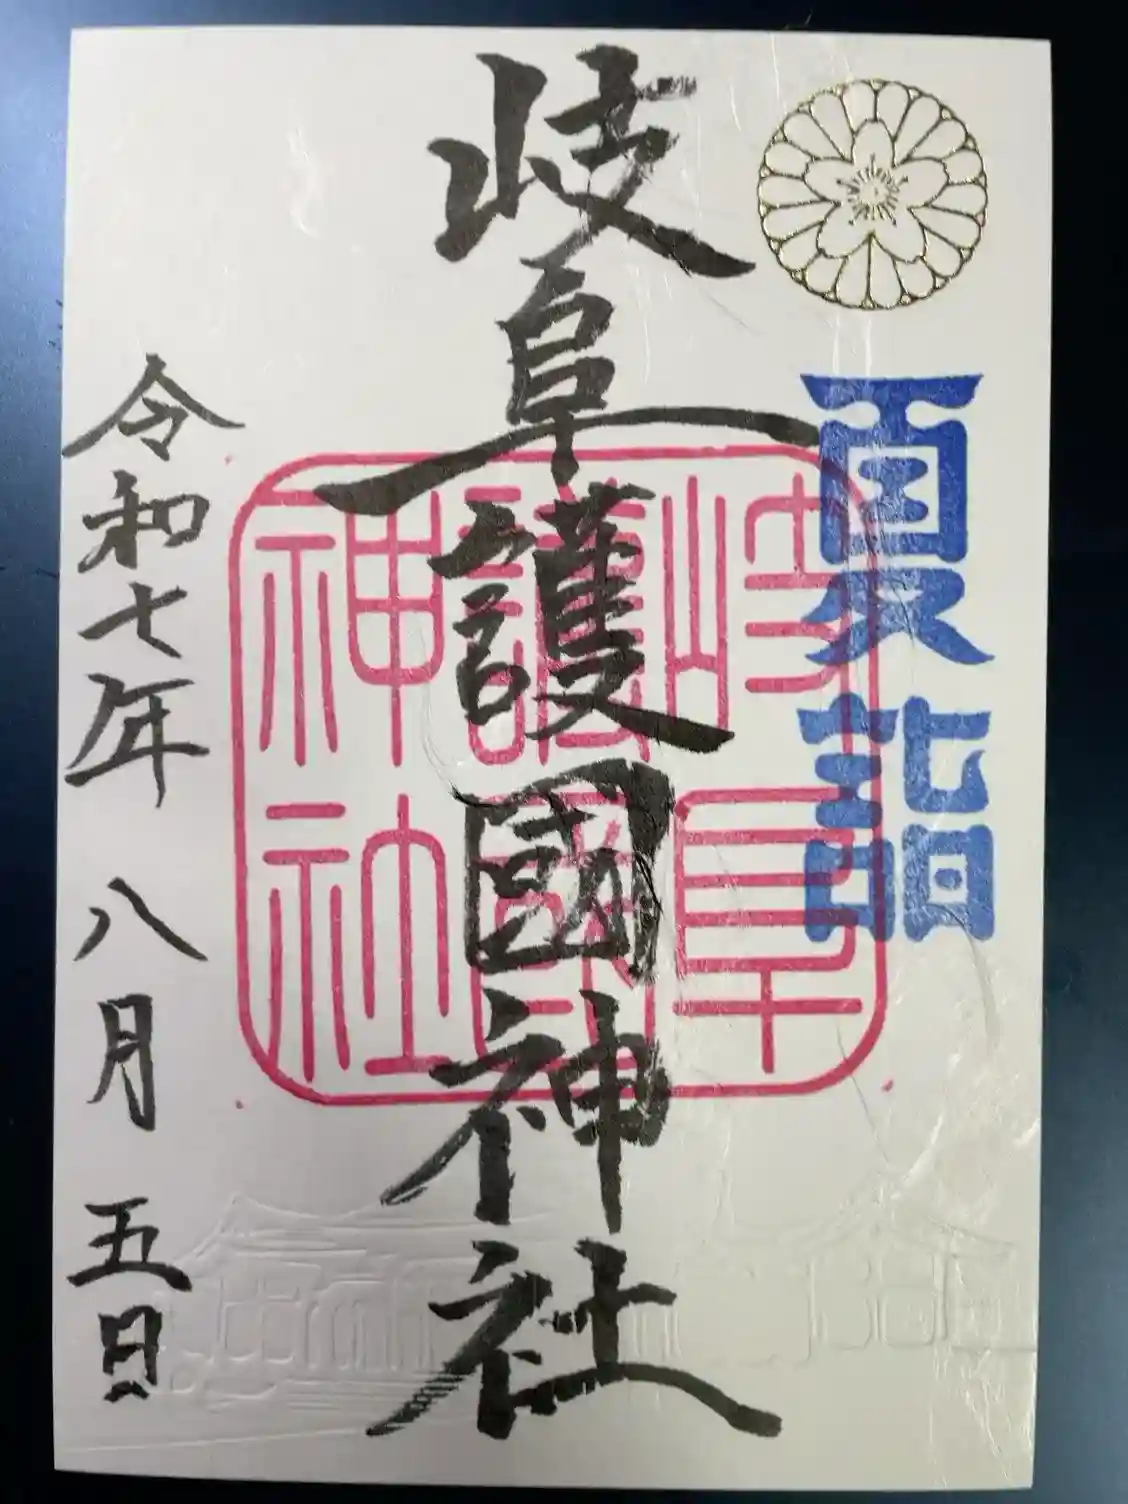 夏詣
岐阜護國神社
岐阜護國神社
令和七年 八月 五日